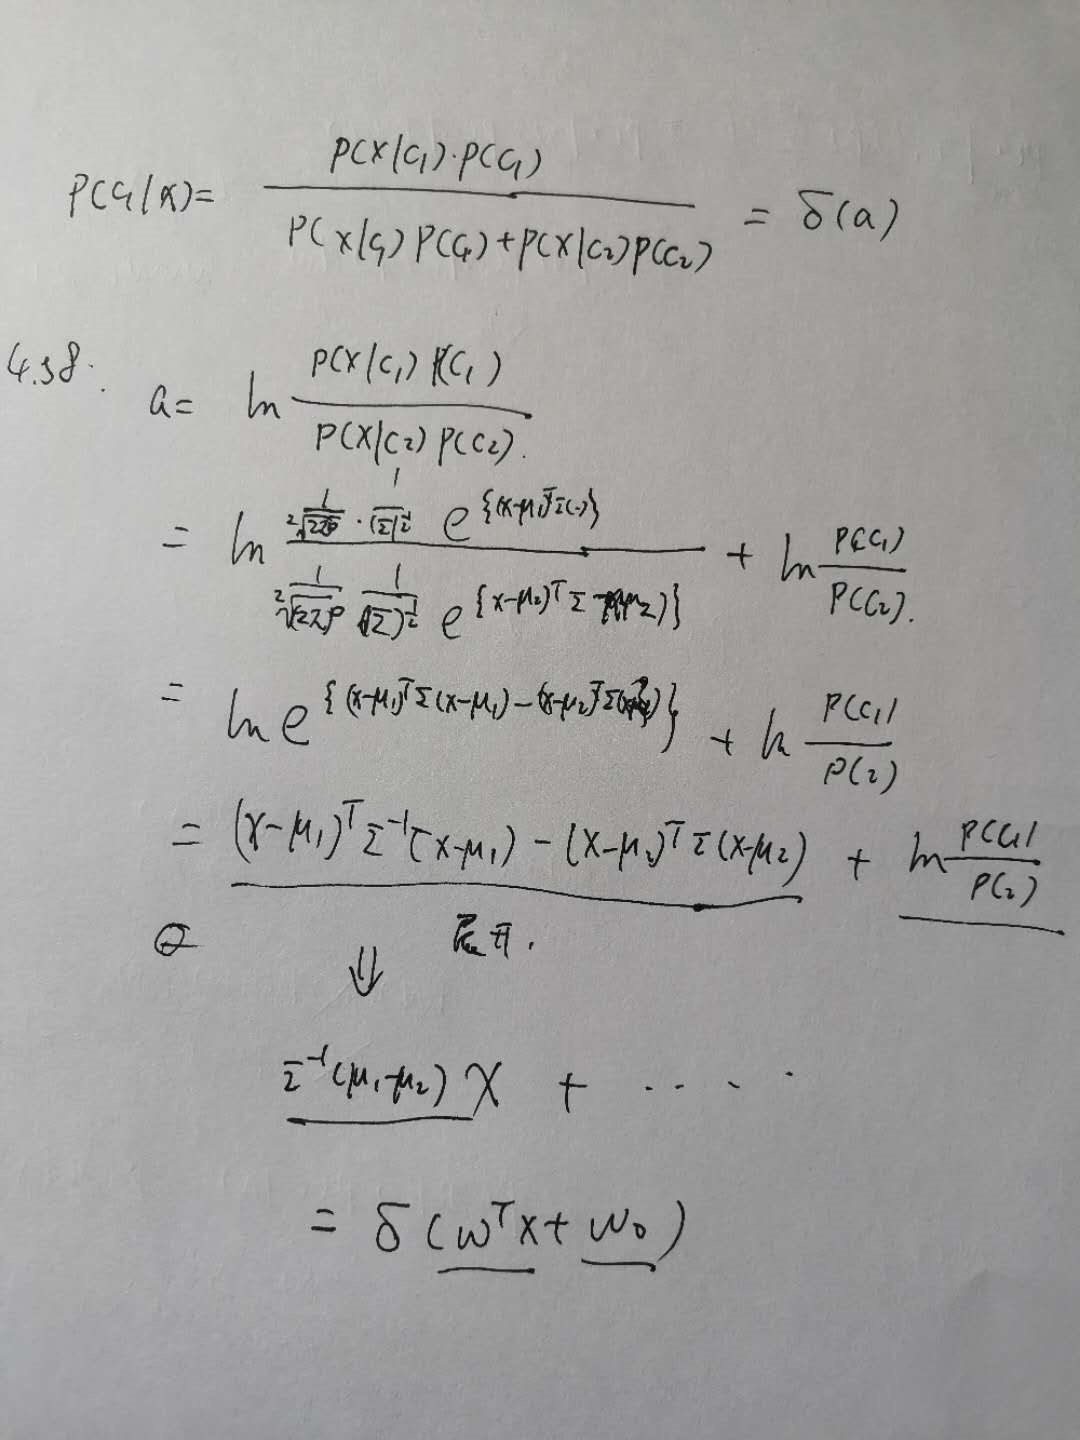 P(C₁|x) = P(X|C₁)·P(C₁) / P(X|C₁)P(C₁)+P(X|C₂)P(C₂) = δ(a)
4.58.
a = ln P(X|C₁)P(C₁) / P(X|C₂)P(C₂).
= ln e^{(x-μ₁)ᵀΣ(-)} / e^{(x-μ₂)ᵀΣ } + ln P(C₁) / P(C₂).
= ln e^{(x-μ₁)ᵀΣ(x-μ₁)-(x-μ₂)ᵀΣ } + ln P(C₁) / P(2)
= (x-μ₁)ᵀΣ⁻¹(x-μ₁) - (x-μ₂)ᵀΣ(x-μ₂) + ln P(C₁) / P(2)
⇓ 展开.
Σ⁻¹(μ₁-μ₂) X + ....
= δ(wᵀx + w₀)